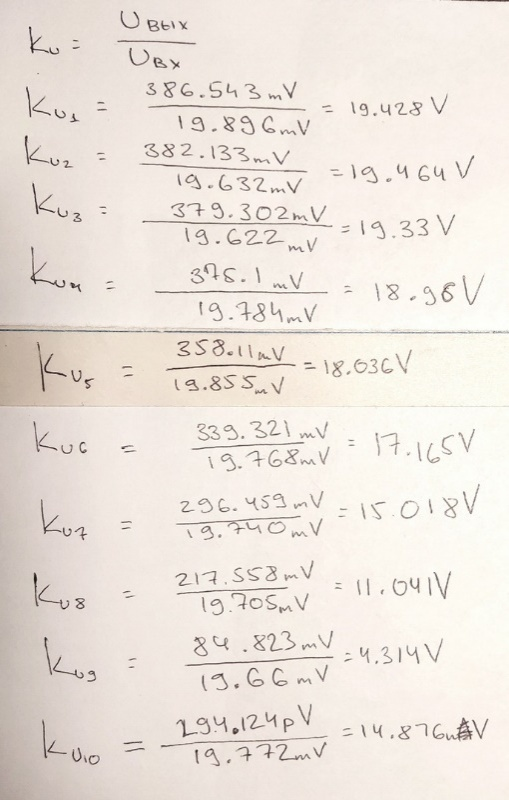 Ku = Uвых / Uвх
Ku1 = 386.543mV / 19.896mV = 19.428 V
Ku2 = 382.133mV / 19.632mV = 19.464 V
Ku3 = 379.302mV / 19.622mV = 19.33 V
Ku4 = 375.1mV / 19.784mV = 18.96 V
Ku5 = 358.11mV / 19.855mV = 18.036V
Ku6 = 339.321mV / 19.768mV = 17.165V
Ku7 = 296.459mV / 19.740mV = 15.018V
Ku8 = 217.558mV / 19.705mV = 11.041V
Ku9 = 84.823mV / 19.66mV = 4.314V
Ku10 = 294.124pV / 19.772mV = 14.876nV